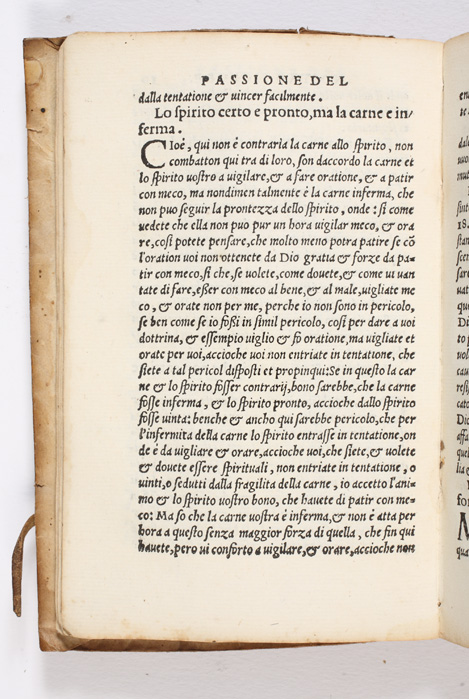 PASSIONE DEL
dalla tentatione & uincer facilmente.
Lo spirito certo e pronto, ma la carne e in/
ferma.
Cioé, qui non é contraria la carne allo spirito, non
combatton qui tra di loro, son daccordo la carne et
lo spirito uostro a uigilare, & a fare oratione, & a patir
con meco, ma nondimen talmente é la carne inferma, che
non puo seguir la prontezza dello spirito, onde: si come
uedete che ella non puo pur un hora uigilar meco, & ora
re, cosi potete pensare, che molto meno potra patire se cō
l'oration uoi non ottenete da Dio gratia & forze da pa-
tir con meco, si che, se uolete, come douete, & come ui uan
tate di fare, esser con meco al bene, & al male, uigliate me
co, & orate non per me, perche io non sono in pericolo,
se ben come se io fossi in simil pericolo, cosi per dare a uoi
dottrina, & essempio uiglio & fo oratione, ma uigliate et
orate per uoi, accioche uoi non entriate in tentatione, che
siete a tal pericol disposti et propinqui: Se in questo la car
ne & lo spirito fosser contrarij, bono sarebbe, che la carne
fosse inferma, & lo spirito pronto, accioche dallo spirito
fosse uinta: benche & ancho qui sarebbe pericolo, che per
l'infermita della carne lo spirito entrasse in tentatione, on
de é da uigliare & orare, accioche uoi, che siete, & uolete
& douete essere spirituali, non entriate in tentatione, o
uinti, o sedutti dalla fragilita della carne, io accetto l'ani-
mo & lo spirito uostro bono, che hauete di patir con me-
co: Ma so che la carne uostra é inferma, & non é atta per
hora a questo senza maggior forza di quella, che fin qui
hauete, pero ui conforto a uigilare, & orare, accioche non